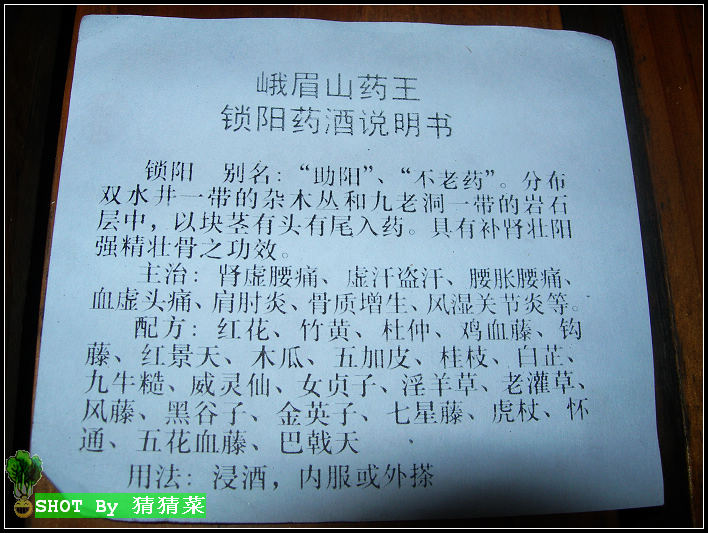 峨眉山药王
锁阳药酒说明书
锁阳 别名：“助阳”、“不老药”。分布
双水井一带的杂木丛和九老洞一带的岩石
层中，以块茎有头有尾入药。具有补肾壮阳
强精壮骨之功效。
主治：肾虚腰痛、虚汗盗汗、腰胀腰痛、
血虚头痛、肩肘炎、骨质增生、风湿关节炎等。
配方：红花、竹黄、杜仲、鸡血藤、钩
藤、红景天、木瓜、五加皮、桂枝、白芷、
九牛糙、威灵仙、女贞子、淫羊草、老灌草、
风藤、黑谷子、金英子、七星藤、虎杖、怀
通、五花血藤、巴戟天
用法：浸酒，内服或外搽
SHOT By 猜猜菜